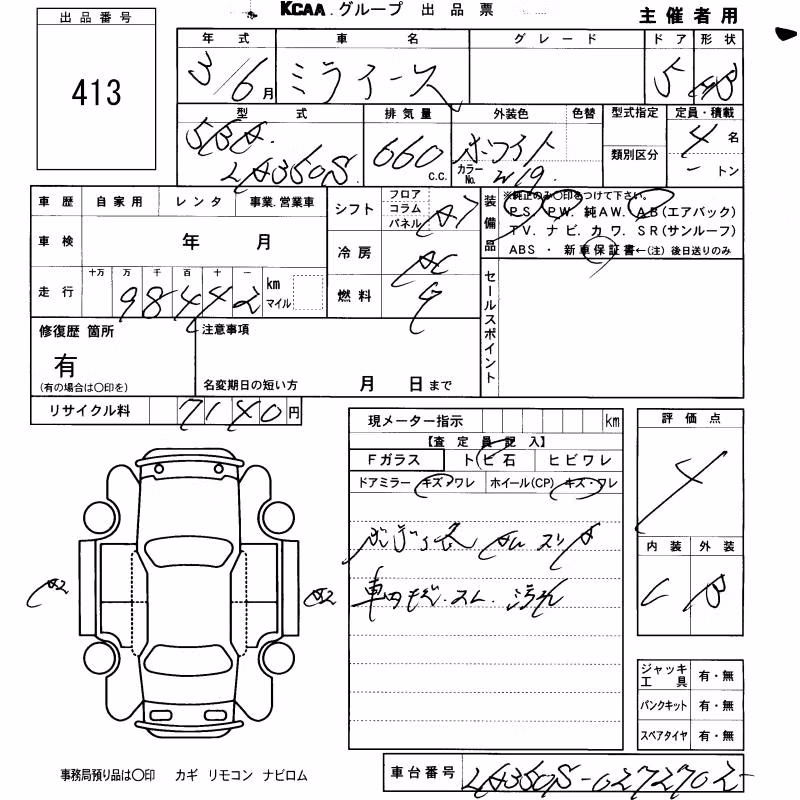 KCAA.グループ 出品票
主催者用
出品番号
413
年式 車名 グレード ドア 形状
3/6月 ミライース 5 HB
型式 排気量 外装色 色替 型式指定 定員・積載
5BA 660 c.c. ホワイト 4名
LA350S カラーNo. W19 類別区分 ートン
車歴 自家用 レンタ 事業.営業車
車検 年 月
走行 十万 万 千 百 十 一 km マイル
98442
シフト フロア コラム パネル AT
冷房 AC
燃料 G
装備品
※純正のみ〇印をつけて下さい。
PS. PW. 純AW. AB(エアバック)
TV. ナビ. カワ. SR(サンルーフ)
ABS ・ 新車保証書←(注) 後日送りのみ
セールスポイント
修復歴 箇所
有
(有の場合は〇印を)
注意事項
名変期日の短い方 月 日まで
リサイクル料 7140円
現メーター指示 km
【査定員記入】
Fガラス トビ石 ヒビワレ
ドアミラー キズ・ワレ ホイール(CP) キズ・ワレ
車内 スレ.汚れ
評価点
4
内装 外装
C B
A2
A2
ジャッキ工具 有・無
パンクキット 有・無
スペアタイヤ 有・無
事務局預り品は〇印 カギ リモコン ナビロム
車台番号 LA350S-0272702